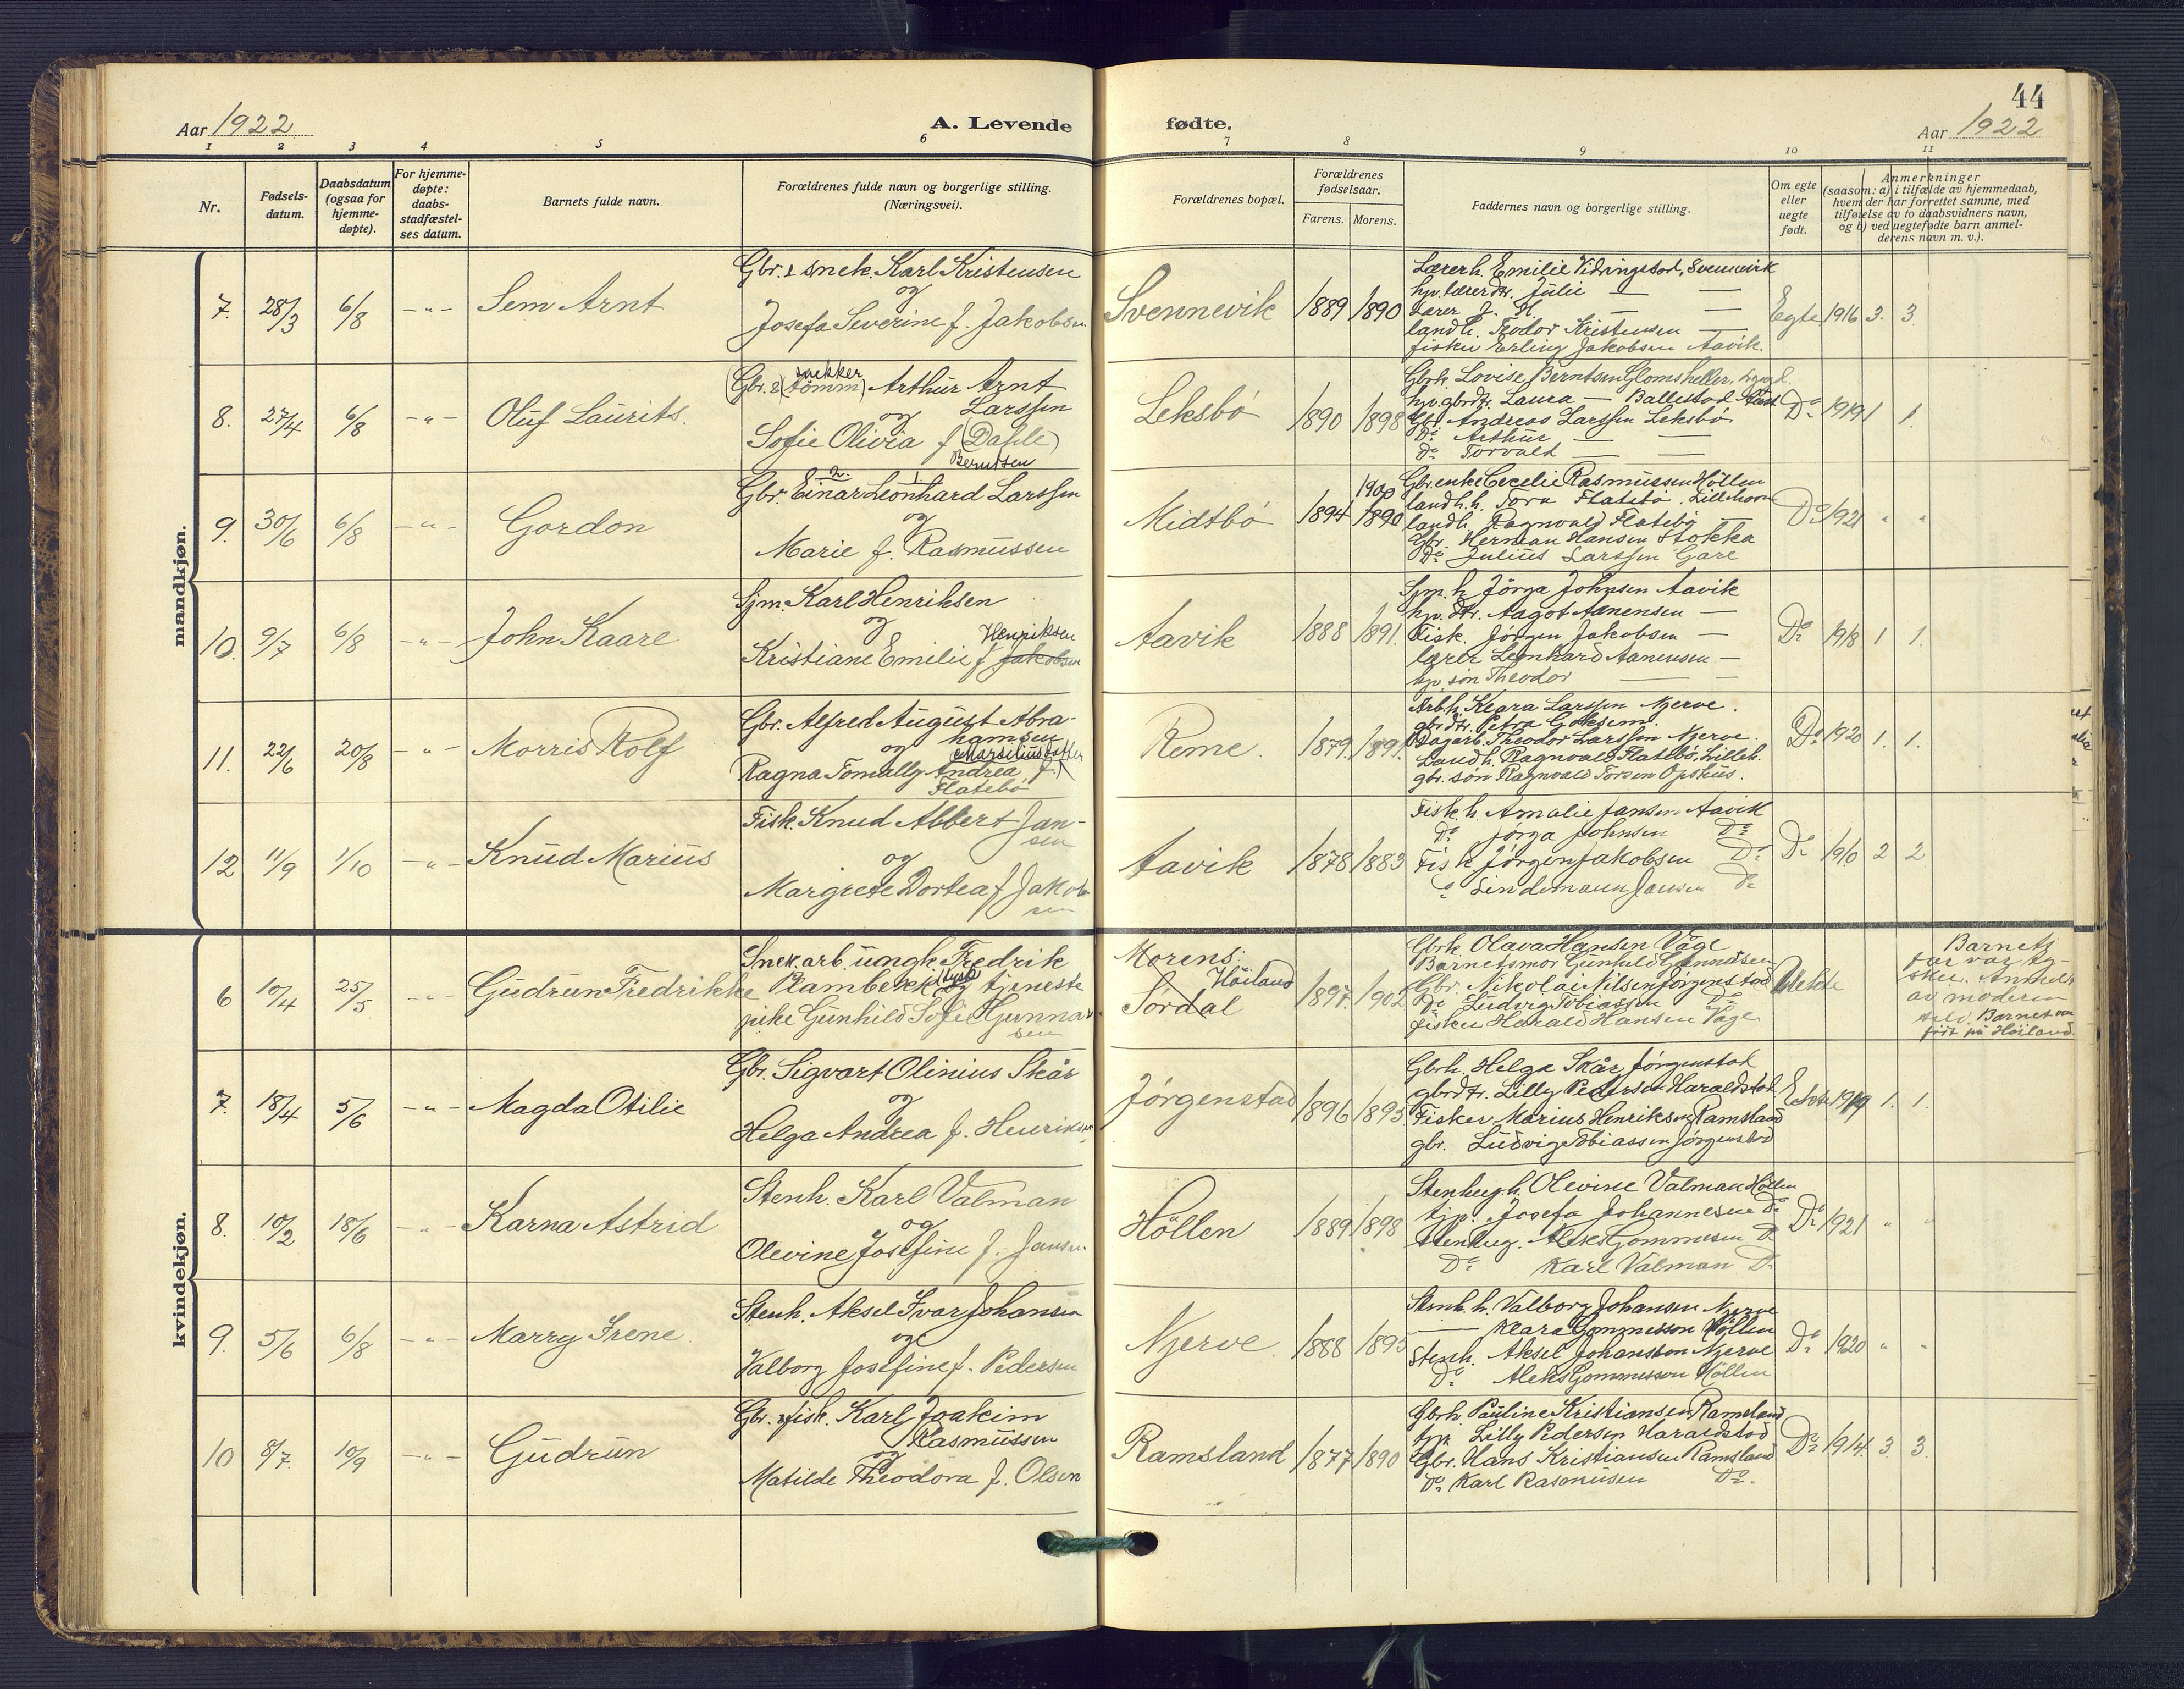 44
Aar 1922
A. Levende
fødte.
Aar 1922
1 2 3 4 5 6 7 8 9 10 11
Nr.
Fødsels-
datum.
Daabsdatum
(ogsaa for
hjemme-
døpte).
For hjemme-
døpte:
daabs-
stadfæstel-
ses datum.
Barnets fulde navn.
Forældrenes fulde navn og borgerlige stilling.
(Næringsvei).
Forældrenes bopæl.
Forældrenes
fødselsaar.
Farens. Morens.
Faddernes navn og borgerlige stilling.
Om egte
eller
uegte
født.
Anmerkninger
(saasom: a) i tilfælde av hjemmedaab,
hvem der har forrettet samme, med
tilføielse av to daabsvidners navn,
og b) ved uegtefødte barn anmel-
derens navn m. v.).
mandkjøn.
7. 28/3 6/8 -"- Sem Arnt
Gbr. & snek. Karl Kristensen
og
Josefa Severine f. Jakobsen
Svennevik 1889 1890
Lærerh. Emilie Vidringstad, Svennevik
hjv. lærerdtr. Julie — —
Lærer J. N. — —
landh. Teodor Kristensen —
fisker Erling Jakobsen Aavik.
Egte 1916 3. 3.
8. 27/4 6/8 -"- Oluf Laurits.
snekker
(Gbr. & (tømm) Arthur Arnt
Larssen
og
Sofie Olivia f (Dahle)
Berntsen
Leksbö 1890 1898
Gbrh. Lovise Berntsen Glomsheller,
hjv. gbrdtr. Laura — Ballestad
Gbr. Andreas Larssen Leksbö
Do Arthur — —
Do Torvald — —
Do 1919 1 1.
9. 30/6 6/8 -"- Gordon
2. 1.
Gbr. Einar Leonhard Larssen
og
Marie f. Rasmussen
Midtbö 1894 1890
1900
Gbr. enke Cecelie Rasmussen Höllen
landh. h. Tora Flatebö
landh. Ragnvald Flatebö —
Gbr. Herman Hansen Stokka
Do Julius Larssen Gare
Do 1921 " "
10. 9/7 6/8 -"- John Kaare
Sjm. Karl Henriksen
og
Henriksen
Kristiane Emilie f Jakobsen
Aavik 1888 1891.
Sjm. h Jörga Johnsen Aavik
hjv. dtr. Aagot Aanensen —
Fisk. Jörgen Jakobsen —
lærer Leonhard Aanensen —
hjv. søn Theodor — —
Do 1918 1 1.
11. 22/6 20/8 -"- Morris Rolf
Gbr. Alfred August Abra-
hamsen
og Marseliusdatter
Ragna Tomally Andrea f.
Flatebö
Reme. 1879. 1891
Arbh. Klara Larssen Njerve.
gbrdtr. Petra
Dagarb. Theodor Larssen Njerve.
Landh. Ragnvald Flatebö, Lilleh.
gbr. søn Ragnvald Torsen Opshus.
Do 1920 1. 1.
12 11/9 1/10 -"- Knud Marius
Fisk. Knud Albert Jan-
sen
og
Margrete Dortea f Jakob-
sen
Aavik 1878 1883
Fisk. h. Amalie Jansen Aavik
Do Jörga Johnsen Do
Fisk Jörgen Jakobsen Do
Do Lindemann Jansen Do
Do 1910 2 2
kvindekjøn.
6 10/4 25/5 -"- Gudrun Fredrikke
Snek. arb. ungk. Fredrik
Plambeck (tysk) og tjeneste
pike Gunhild Sofie Gunnar
sen
Morens:
Höiland
Sördal 1897. 1902
Gbrh. Olava Hansen Våge
Barnets mor Gunhild Gunnarsen
Gbr. Nikolai Nilsen Jörgenstad
Do Ludvig Tobiassen Do
fisker Harald Hansen Våge
Uekte
Barnets
far var ty-
sker. Anmeldt
av moderen
selv. Barnet var
født på Höiland.
7. 18/4 5/6 -"- Magda Otilie
Gbr. Sigvart Olinius Skår
og
Helga Andrea f. Henriksen
Jörgenstad 1896 1893
Gbrh. Helga Skår Jörgenstad
gbrdtr. Lilly Pedersen Haraldstad
Fisker Marius Henriksen Ramsland
gbr. Ludvig Tobiassen Jörgenstad
Ekte 1919 1. 1.
8. 10/2 18/6 -"- Karna Astrid
Stenh. Karl Valman
og
Olevine Josefine f. Jansen
Höllen 1889 1898
Stenhugh. Olevine Valman Höllen
tjp. Josefa Johannesen Do
Stenhug. Aleks Gommesen Do
Do Karl Valman Do
Do 1921 " "
9. 5/6 6/8 -"- Marry Irene.
Stenh. Aksel Ivar Johansen
og
Valborg Josefine f. Pedersen
Njerve. 1888 1895
Stenh. h. Valborg Johansen Njerve
— Klara Gommesson Höllen
Stenh. Aksel Johansson Njerve
Do Aleks Gommesson Höllen
Do 1920 " "
10 8/7 10/9 -"- Gudrun
Gbr. & fisk. Karl Joakim
Rasmussen
og
Matilde Theodora f. Olsen
Ramsland 1877 1890
Gbrh. Pauline Kristiansen Ramsland
tjp. Lilly Pedersen Haraldstad
Gbr. Hans Kristiansen Ramsland
Do Karl Rasmussen Do.
Do 1914 3. 3.